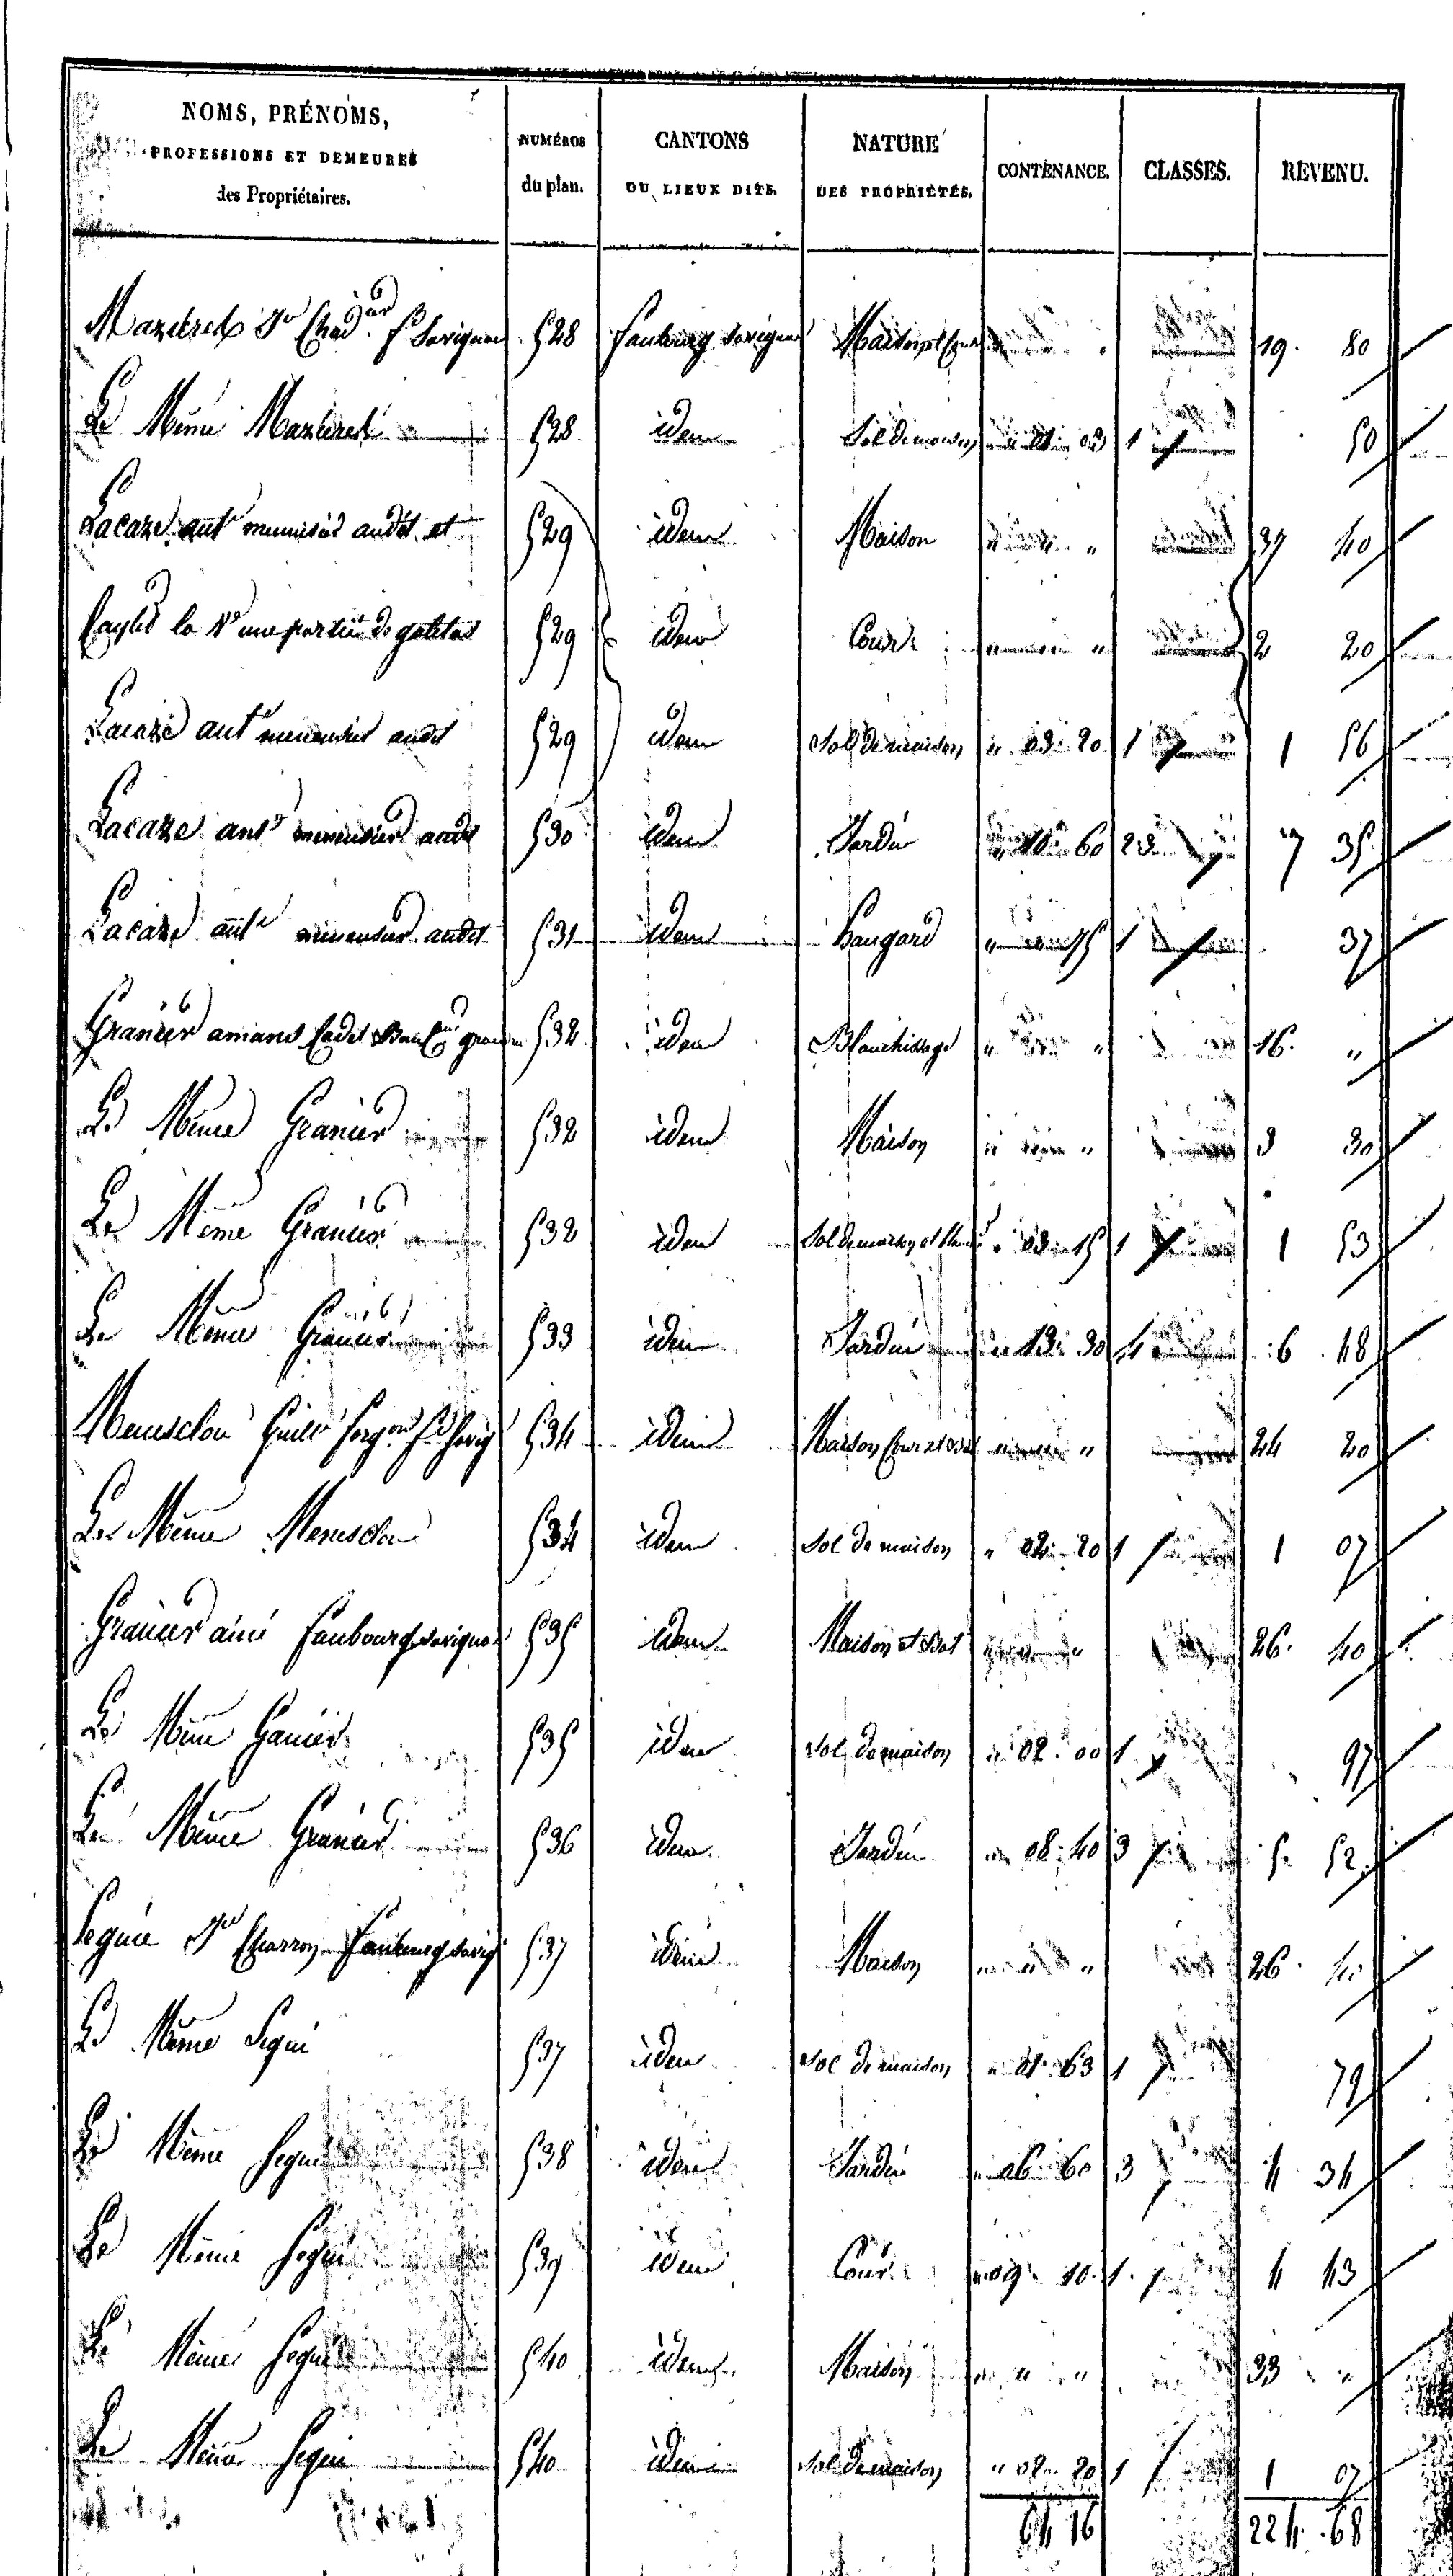 NOMS, PRÉNOMS, PROFESSIONS ET DEMEURES des Propriétaires.
NUMÉROS du plan.
CANTONS OU LIEUX DITS.
NATURE DES PROPRIÉTÉS.
CONTENANCE.
CLASSES.
REVENU.
528 faubourg savignac Maison et Cour 19 80
Le Même 528 idem Sol de maison 01 03 1 50
Lacaze ant menuisier audit et 529 idem Maison " 37 40
la Ve une partie de galetas 529 idem Cour " 2 20
Lacaze ant menuisier audit 529 idem Sol de maison " 03 20 1 1 56
Lacaze ant menuisier audit 530 idem Jardin " 10 60 2 3 7 35
Lacaze ant menuisier audit 531 idem hangard " 75 1 37
Granier amans Cadet 532 idem Blanchissage " " 16 "
Le Même Granier 532 idem Maison " " 3 30
Le Même Granier 532 idem Sol de maison et " 03 15 1 1 53
Le Même Granier 533 idem Jardin " 13 30 4 6 48
534 idem Maison Cour et " 24 20
Le Même 534 idem Sol de maison " 02 20 1 1 07
Granier ainé Faubourg savignac 535 idem Maison et " 26 40
Le Même Granier 535 idem Sol de maison " 02 00 1 97
Le Même Granier 536 idem Jardin 08 40 3 5 52
Charron Faubourg savig 537 idem Maison " " 26 40
Le Même Segui 537 idem Sol de maison " 01 63 1 79
Le Même Segui 538 idem Jardin " 06 60 3 4 34
Le Même Segui 539 idem Cour " 09 10 1 4 43
Le Même Segui 540 idem Maison " " 33 "
Le Même Segui 540 idem Sol de maison " 02 20 1 1 07
64 16 224 68